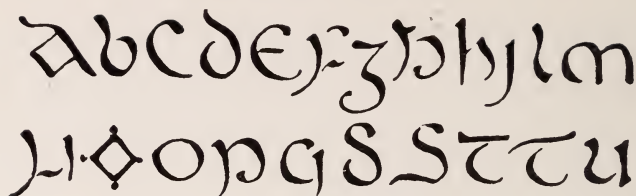 A b C d E F g h h j l m
N O O p q S S T T U